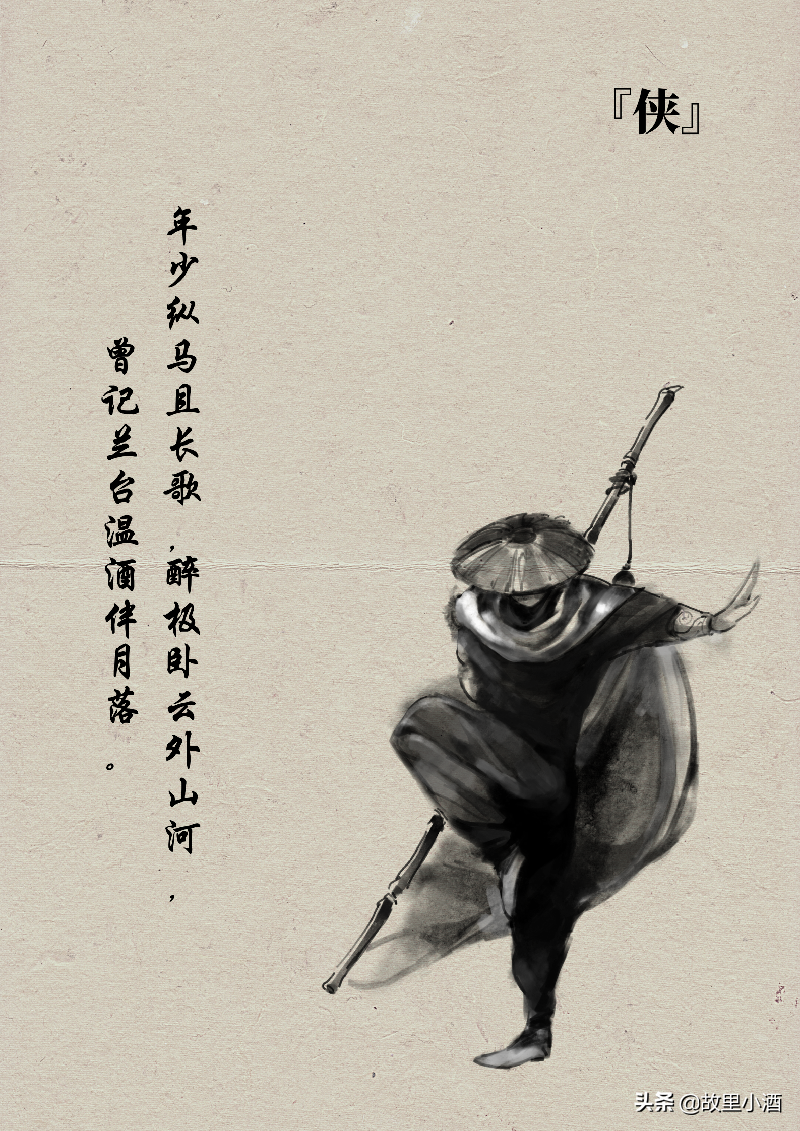 『侠』
年少纵马且长歌，醉极卧云外山河，
曾记兰台温酒伴月落。
头条 @故里小酒